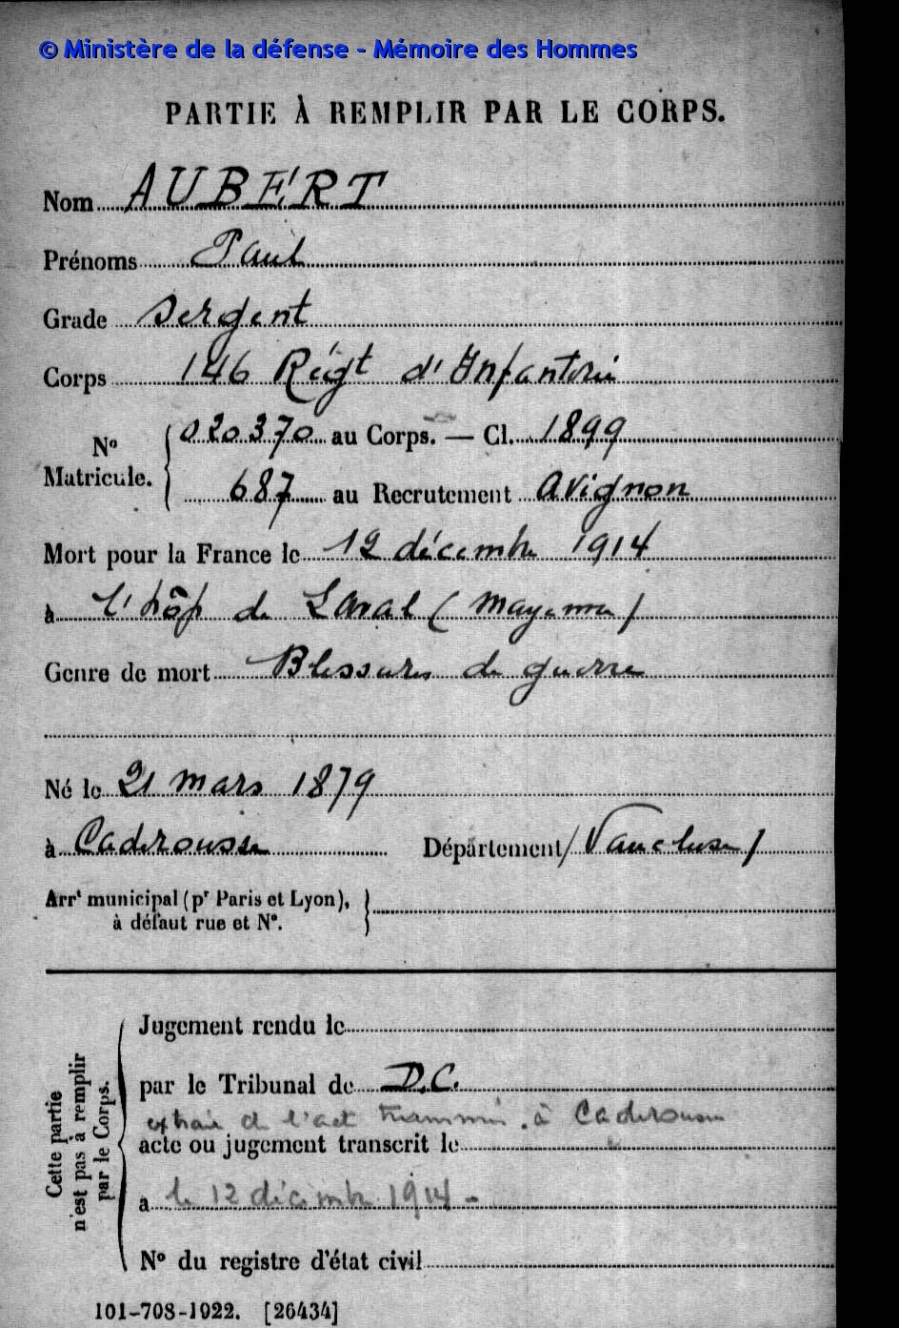 © Ministère de la défense - Mémoire des Hommes
PARTIE À REMPLIR PAR LE CORPS.
Nom AUBERT
Prénoms Paul
Grade Sergent
Corps 146 Régt d'Infanterie
N° Matricule. 020370 au Corps. — Cl. 1899
687 au Recrutement Avignon
Mort pour la France le 12 décembre 1914
à l'hôp de Laval (Mayenne)
Genre de mort Blessures de guerre
Né le 21 mars 1879
à Caderousse Département (Vaucluse)
Arrt municipal (pr Paris et Lyon),
à défaut rue et N°.
Cette partie
n'est pas à remplir
par le Corps.
Jugement rendu le
par le Tribunal de D.C.
extrait de l'act transmis à Caderousse
acte ou jugement transcrit le
a le 12 décembre 1914 -
N° du registre d'état civil
101-708-1922. [26434]